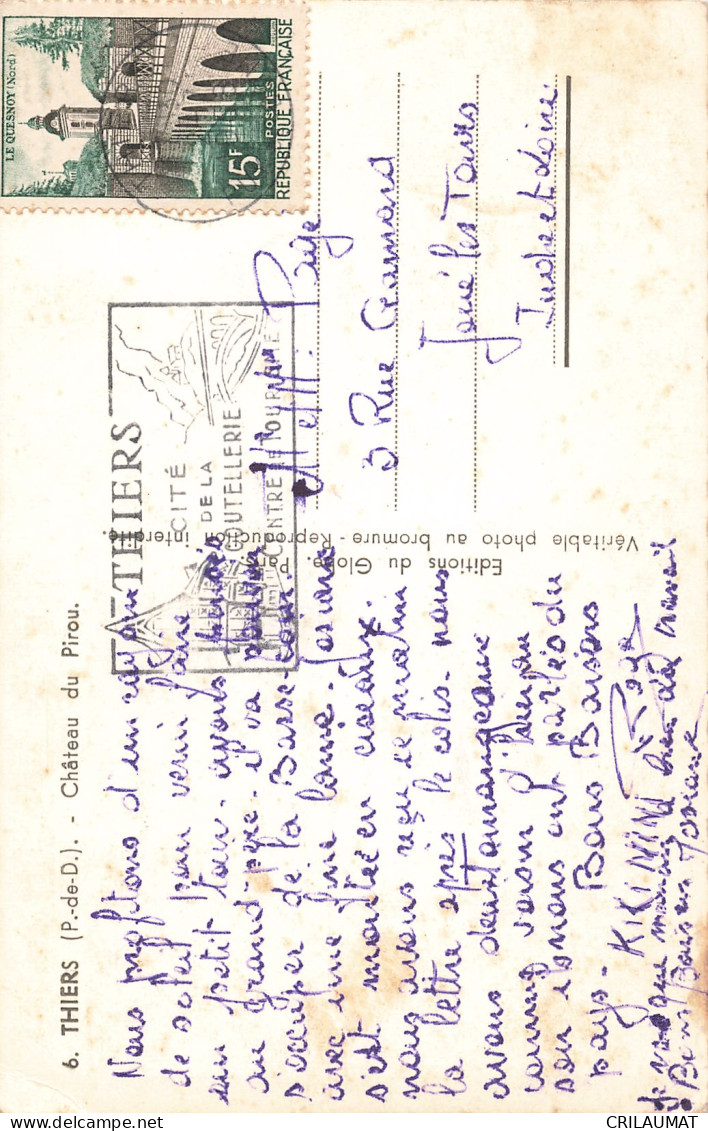 LE QUESNOY (Nord)
15F
POSTES
REPUBLIQUE FRANÇAISE
6. THIERS (P.-de-D.). - Château du Pirou.
THIERS
CITÉ
DE LA
COUTELLERIE
CENTRE DE TOURISME
Editions du Globe. Paris.
Véritable photo au bromure - Reproduction interdite.
Page
3 Rue
Joué les Tours
Indre et Loire
Nous profitons d'un rayon
de soleil pour venir faire
un petit tour. ayons
au grand-père. il va
s'occuper de la Basse-cour.
avec une fine lame. Josiane
s'est montée en ciseaux.
nous avons reçu ce matin
la lettre après le colis. nous
avons
sommes hier au
soir ils nous ont parlés du
pays. Bons Baisers
KIKI NINI
Bons Baisers Josiane
CRILAUMAT